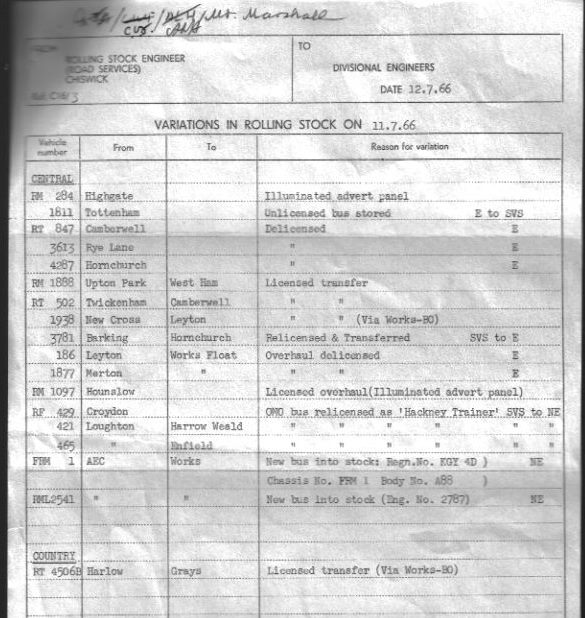 Mr. Marshall
FROM
ROLLING STOCK ENGINEER
(ROAD SERVICES)
CHISWICK
TO
DIVISIONAL ENGINEERS
DATE 12.7.66
VARIATIONS IN ROLLING STOCK ON 11.7.66
Vehicle number From To Reason for variation
CENTRAL
RM 284 Highgate Illuminated advert panel
1811 Tottenham Unlicensed bus stored E to SVS
RT 847 Camberwell Delicensed E
3613 Rye Lane " E
4287 Hornchurch " E
RM 1888 Upton Park West Ham Licensed transfer
RT 502 Twickenham Camberwell " "
1938 New Cross Leyton " " (Via Works-BO)
3781 Barking Hornchurch Relicensed & Transferred SVS to E
186 Leyton Works Float Overhaul delicensed E
1877 Merton " " " E
RM 1097 Hounslow Licensed overhaul(Illuminated advert panel)
RF 429 Croydon OMO bus relicensed as 'Hackney Trainer' SVS to NE
421 Loughton Harrow Weald " " " " " "
465 " Enfield " " " " " "
FRM 1 AEC Works New bus into stock: Regn.No. KGY 4D ) NE
Chassis No. FRM 1 Body No. A88 )
RML2541 " " New bus into stock (Eng. No. 2787) NE
COUNTRY
RT 4506B Harlow Grays Licensed transfer (Via Works-BO)